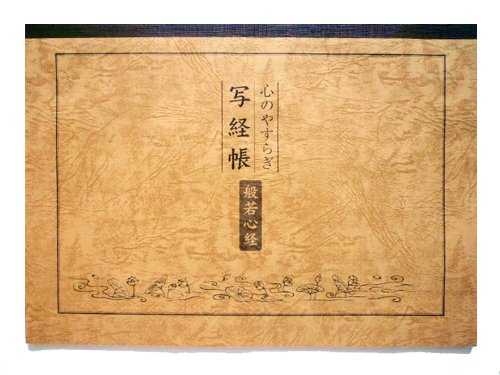 心のやすらぎ
写経帳
般若心経